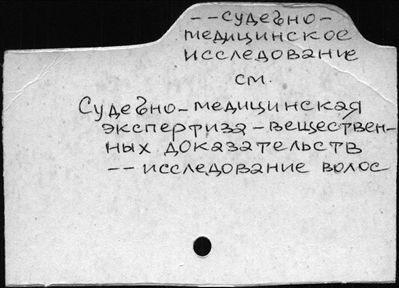 -- судебно-
медицинское
исследование
см.
Судебно-медицинская
экспертиза - веществен-
ных доказательств
-- исследование волос